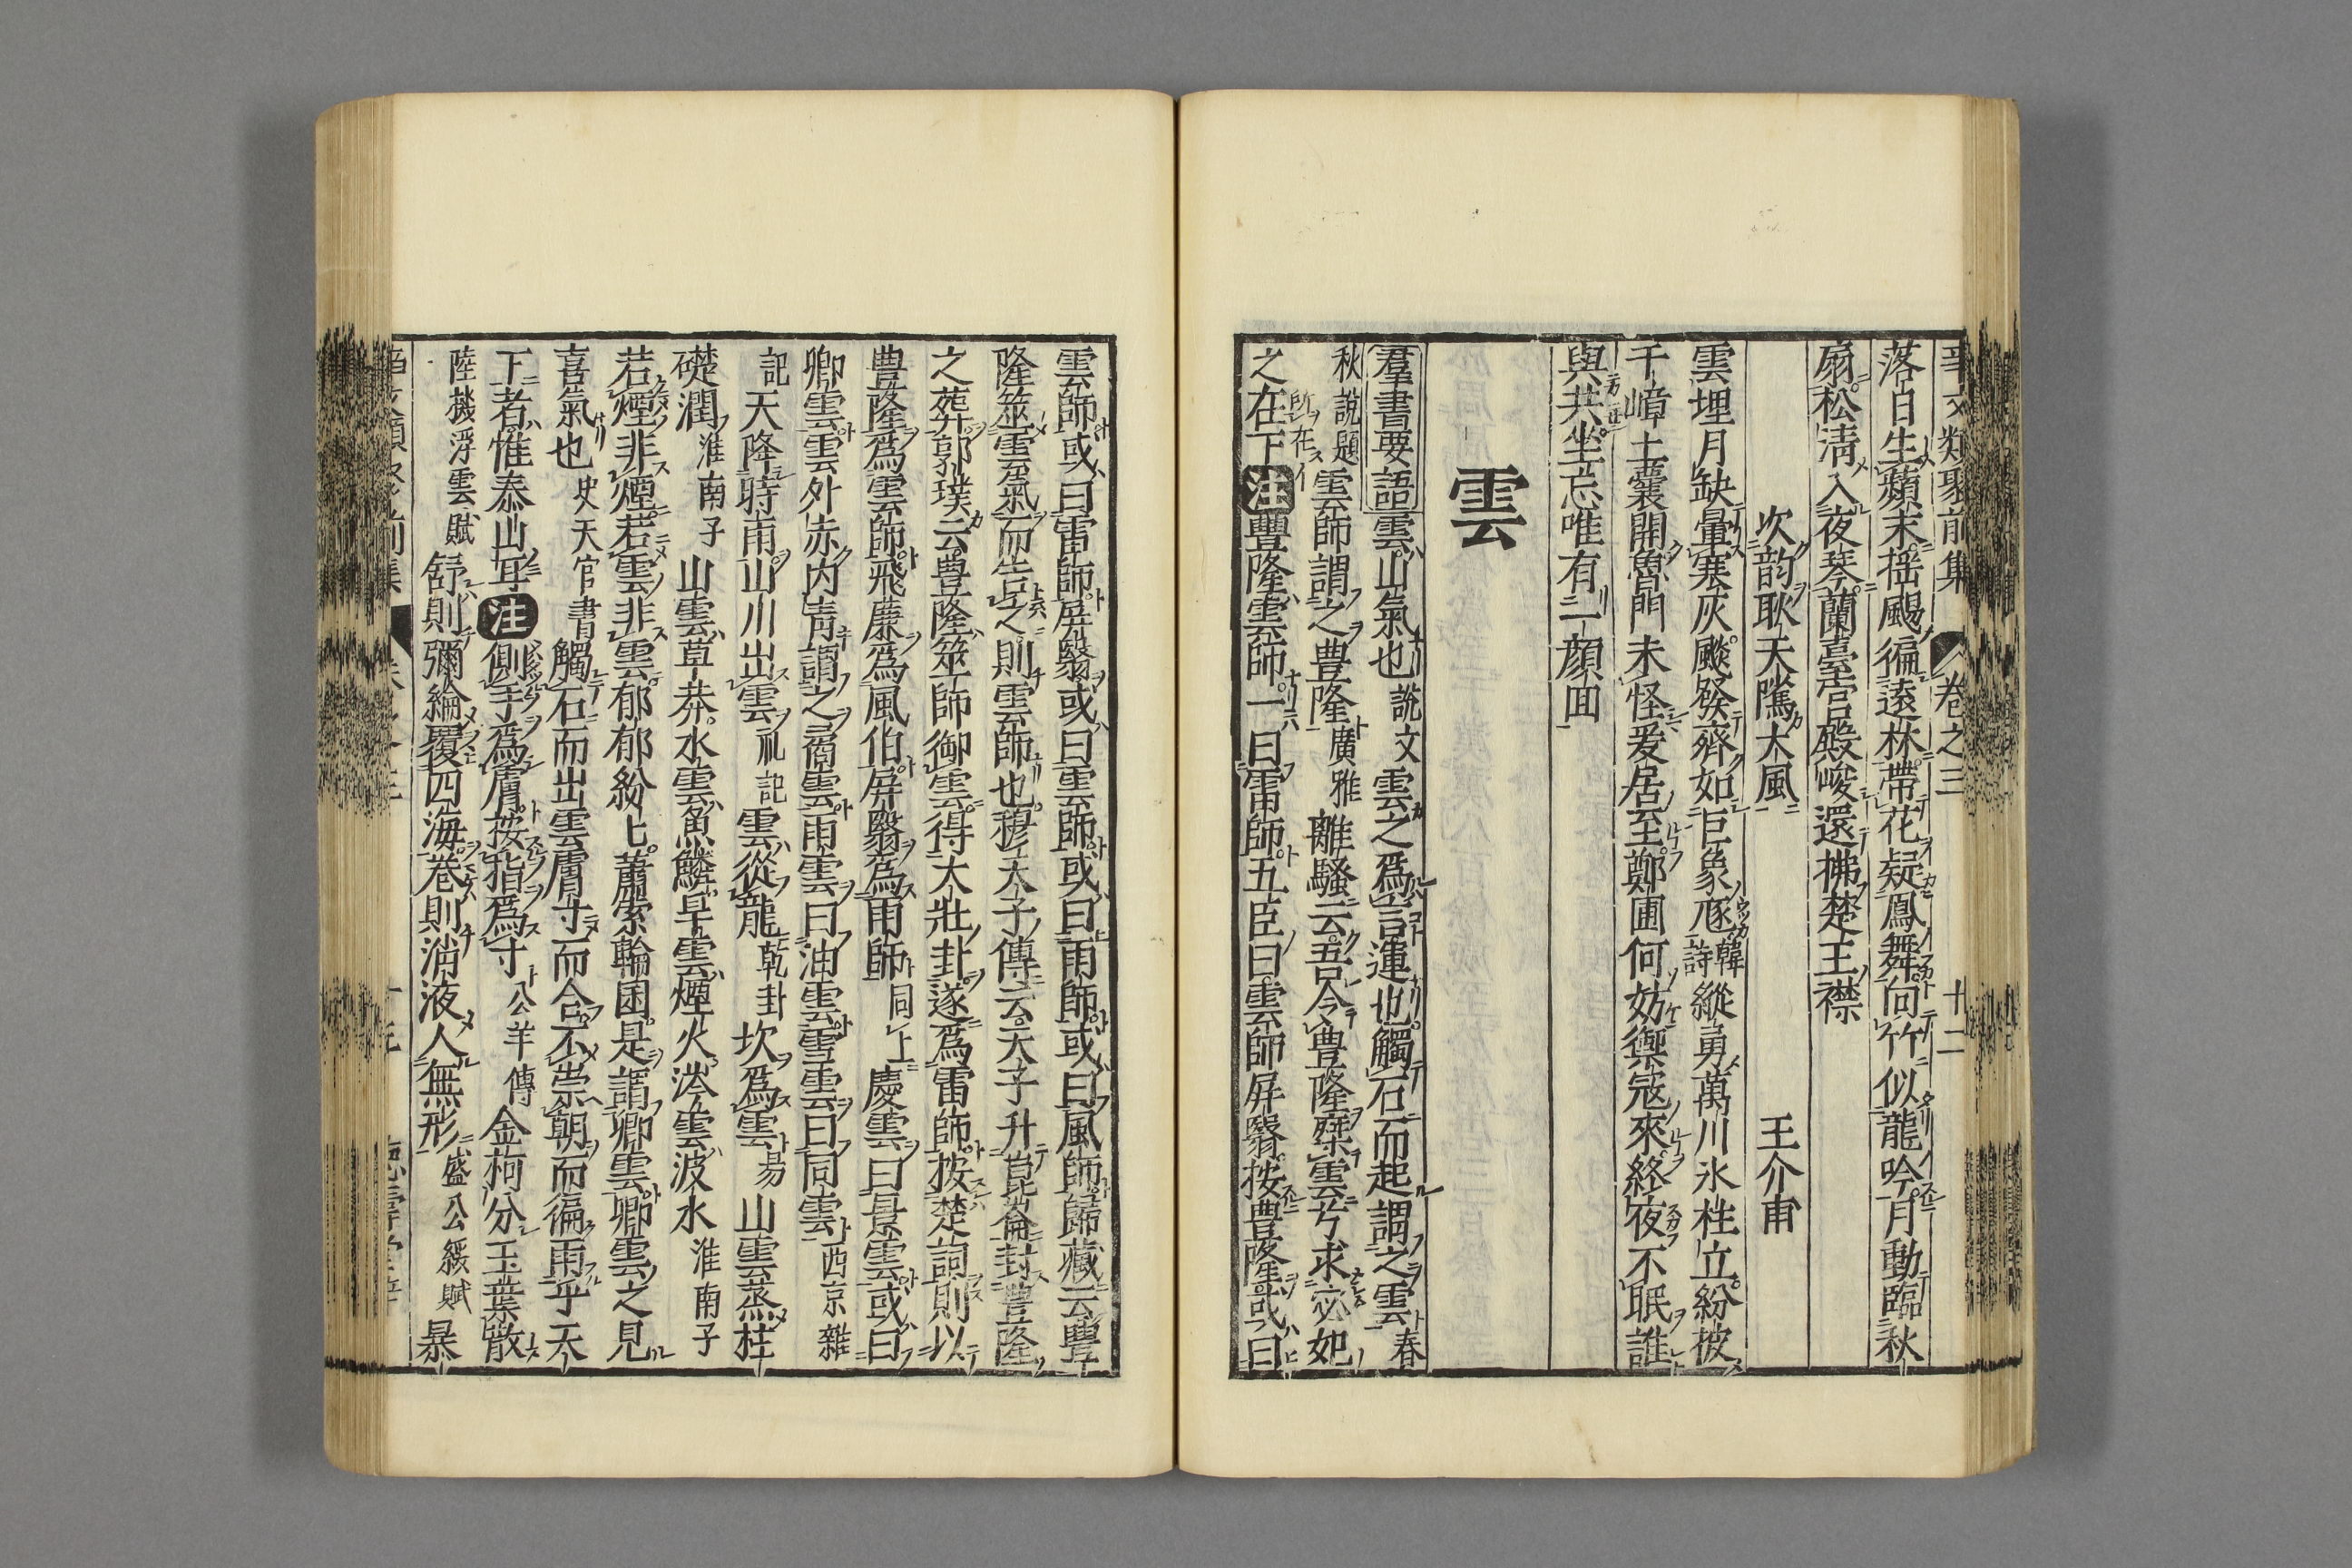 事文類聚前集 卷之三 十二
落日生蘋末揺颺徧遠林帶花疑鳳舞向竹似龍吟月動臨秋
扇松淸入夜琴蘭臺宫殿峻還拂楚王襟
次韵耿天隲大風 王介甫
雲埋月缺暈寒灰飈發齊如巨象豗韓詩縱勇萬川氷柱立紛披
千嶂土囊開魯門未怪爰居至鄭圃何妨禦冦來終夜不眠誰
與共坐忘唯有一顔回
雲
羣書要語雲山氣也說文雲之爲言運也觸石而起謂之雲春
秋說題雲師謂之豊隆廣雅離騷云吾令豊隆椉雲兮求宓妃
之在下注豐隆雲師一曰雷師五臣曰雲師屛翳按豊隆或曰
所在
雲師或曰雷師屛翳或曰雲師或曰雨師或曰風師歸藏云豐
隆筮雲氣而告之則雲師也穆天子傳云天子升崑崙封豐隆
之葬郭璞云豊隆筮師御雲得大壯卦遂爲雷師按楚詞則以
豊隆爲雲師飛廉爲風伯屛翳爲雨師同上慶雲曰景雲或曰
卿雲雲外赤内靑謂之矞雲雨雲曰油雲雪雲曰同雲西京雜
記天降時雨山川出雲礼記雲從龍乾卦坎爲雲易山雲蒸柱
礎潤淮南子山雲草莽水雲魚鱗旱雲煙火涔雲波水淮南子
若煙非煙若雲非雲郁郁紛匕蕭索輪囷是謂卿雲卿雲之見
喜氣也史天官書觸石而出雲膚寸而合不崇朝而徧雨乎天
下者惟泰山耳注側手爲膚按指爲寸公羊傳金柯分玉葉散
陸機浮雲賦舒則彌綸覆四海巻則消液人無形盛公綏賦暴